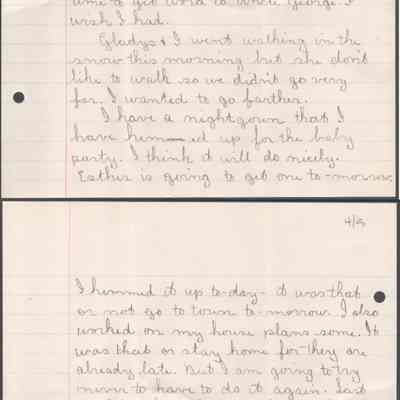 time to get word to Uncle George. I
wish I had.
Gladys & I went walking in the
snow this morning but she don't
like to walk so we didn't go very
far. I wanted to go farther.
I have a nightgown that I
have hemmed up for the baby
party. I think it will do nicely.
Esther is going to get one to-morrow.
4/5
I hemmed it up to-day - it was that
or not go to town to-morrow. I also
worked on my house plans some. It
was that or stay home for they are
already late. But I am going to try
never to have to do it again. Last